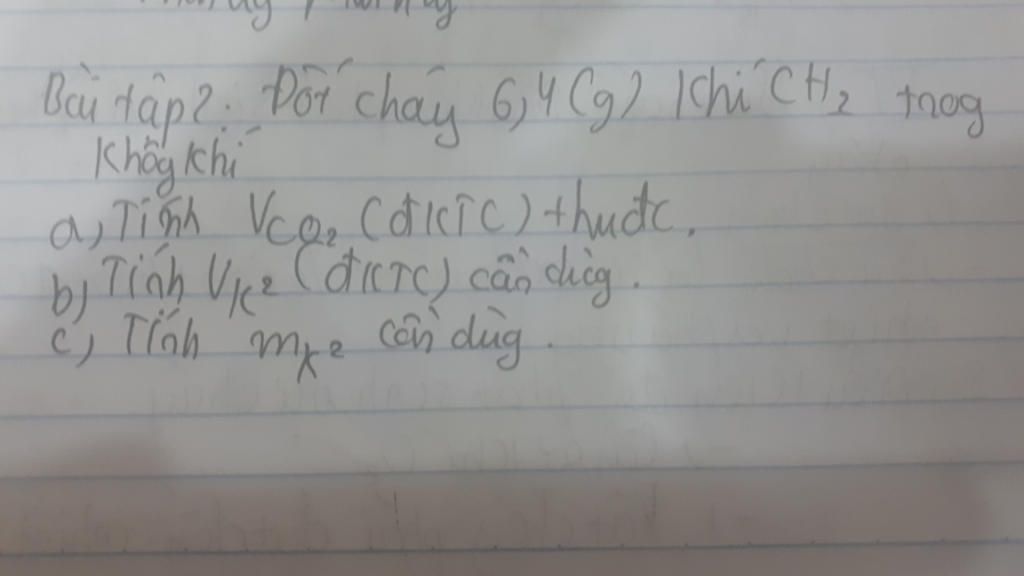 Bài tập 2. Đốt cháy 6,4 (g) khí CH2 trog
khôg khí
a, Tính VCO2 (đKTC) thu đc.
b) Tính VK2 (đKTC) cần dùg.
c, Tính mK2 cần dùg.